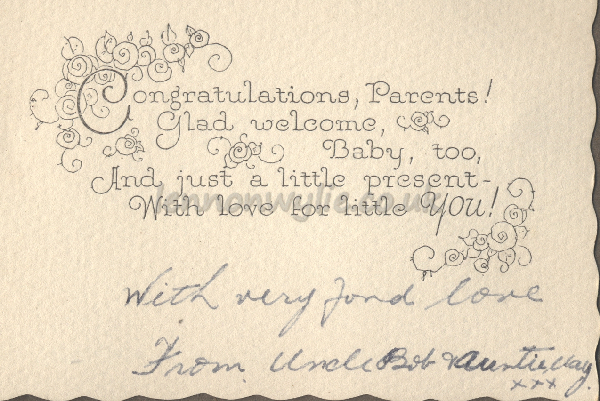 Congratulations, Parents!
Glad welcome,
Baby, too,
And just a little present-
With love for little YOU!
lennonwylie.co.uk
With very fond love
From Uncle Bob & Auntie May.
xxx